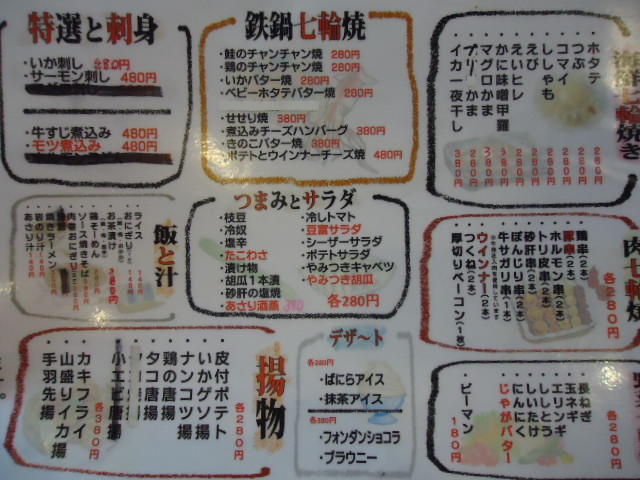 特選と刺身
・いか刺し 280円
・サーモン刺し 480円
・牛すじ煮込み 480円
・モツ煮込み 480円
鉄鍋七輪焼
・鮭のチャンチャン焼 280円
・鶏のチャンチャン焼 280円
・いかバター焼 280円
・ベビーホタテバター焼 280円
・せせり焼 380円
・煮込みチーズハンバーグ 380円
・きのこバター焼 380円
・ポテトとウインナーチーズ焼 480円
・ホタテ 280円
・つぶ 280円
・コマイ 280円
・ししゃも
・えび
・えいひれ
・かに味噌甲羅
・マグロかま
・ブリーかま
・イカ一夜干し 380円
飯と汁
・ライス
・おにぎり
・お茶漬け
・ソース焼きそば
・肉巻おにぎり
・焼きラーメン
・岩のり汁
・あさり汁
つまみとサラダ
・枝豆
・冷奴
・塩辛
・たこわさ
・漬け物
・胡瓜1本漬
・砂肝の塩焼
・あさり酒蒸 380
・冷しトマト
・豆富サラダ
・シーザーサラダ
・ポテトサラダ
・やみつきキャベツ
・やみつき胡瓜
各280円
肉七輪
・鶏串(2本)
・豚串(2本)
・ホルモン串(2本)
・トリ皮串(2本)
・砂肝串(2本)
・ぼんじり串(2本)
・牛サガリ串(1本)
・ウインナー(2本)
・つくね(2本)
・厚切りベーコン(1枚)
各280円
揚物
・皮付ポテト
・いかゲソ揚
・ナンコツ揚
・鶏の唐揚
・タコ唐揚
・小エビ唐揚
各280円
・カキフライ
・山盛りイカ揚
・手羽先揚
各380円
デザ~ト
各280円
・ばにらアイス
・抹茶アイス
各380円
・フォンダンショコラ
・ブラウニー
・長ねぎ
・玉ネギ
・エリンギ
・ししとう
・しいたけ
・にんにく
・じゃがバター
各280円
・ピーマン 180円